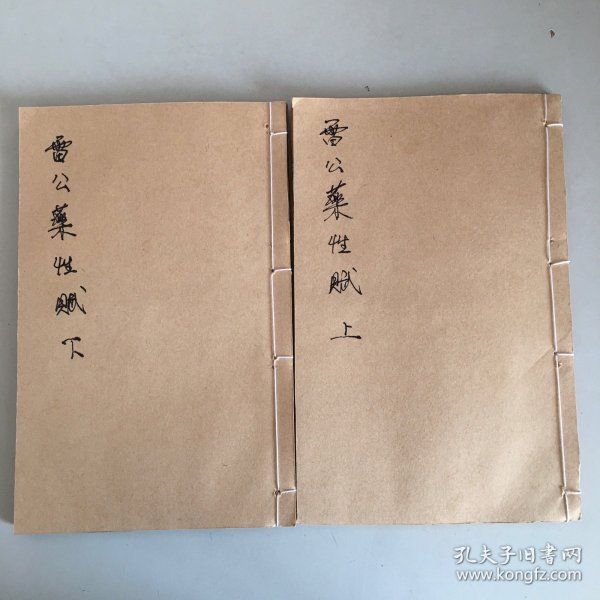 雷公藥性賦 上
雷公藥性賦 下
孔夫子旧书网
www.kongfz.com